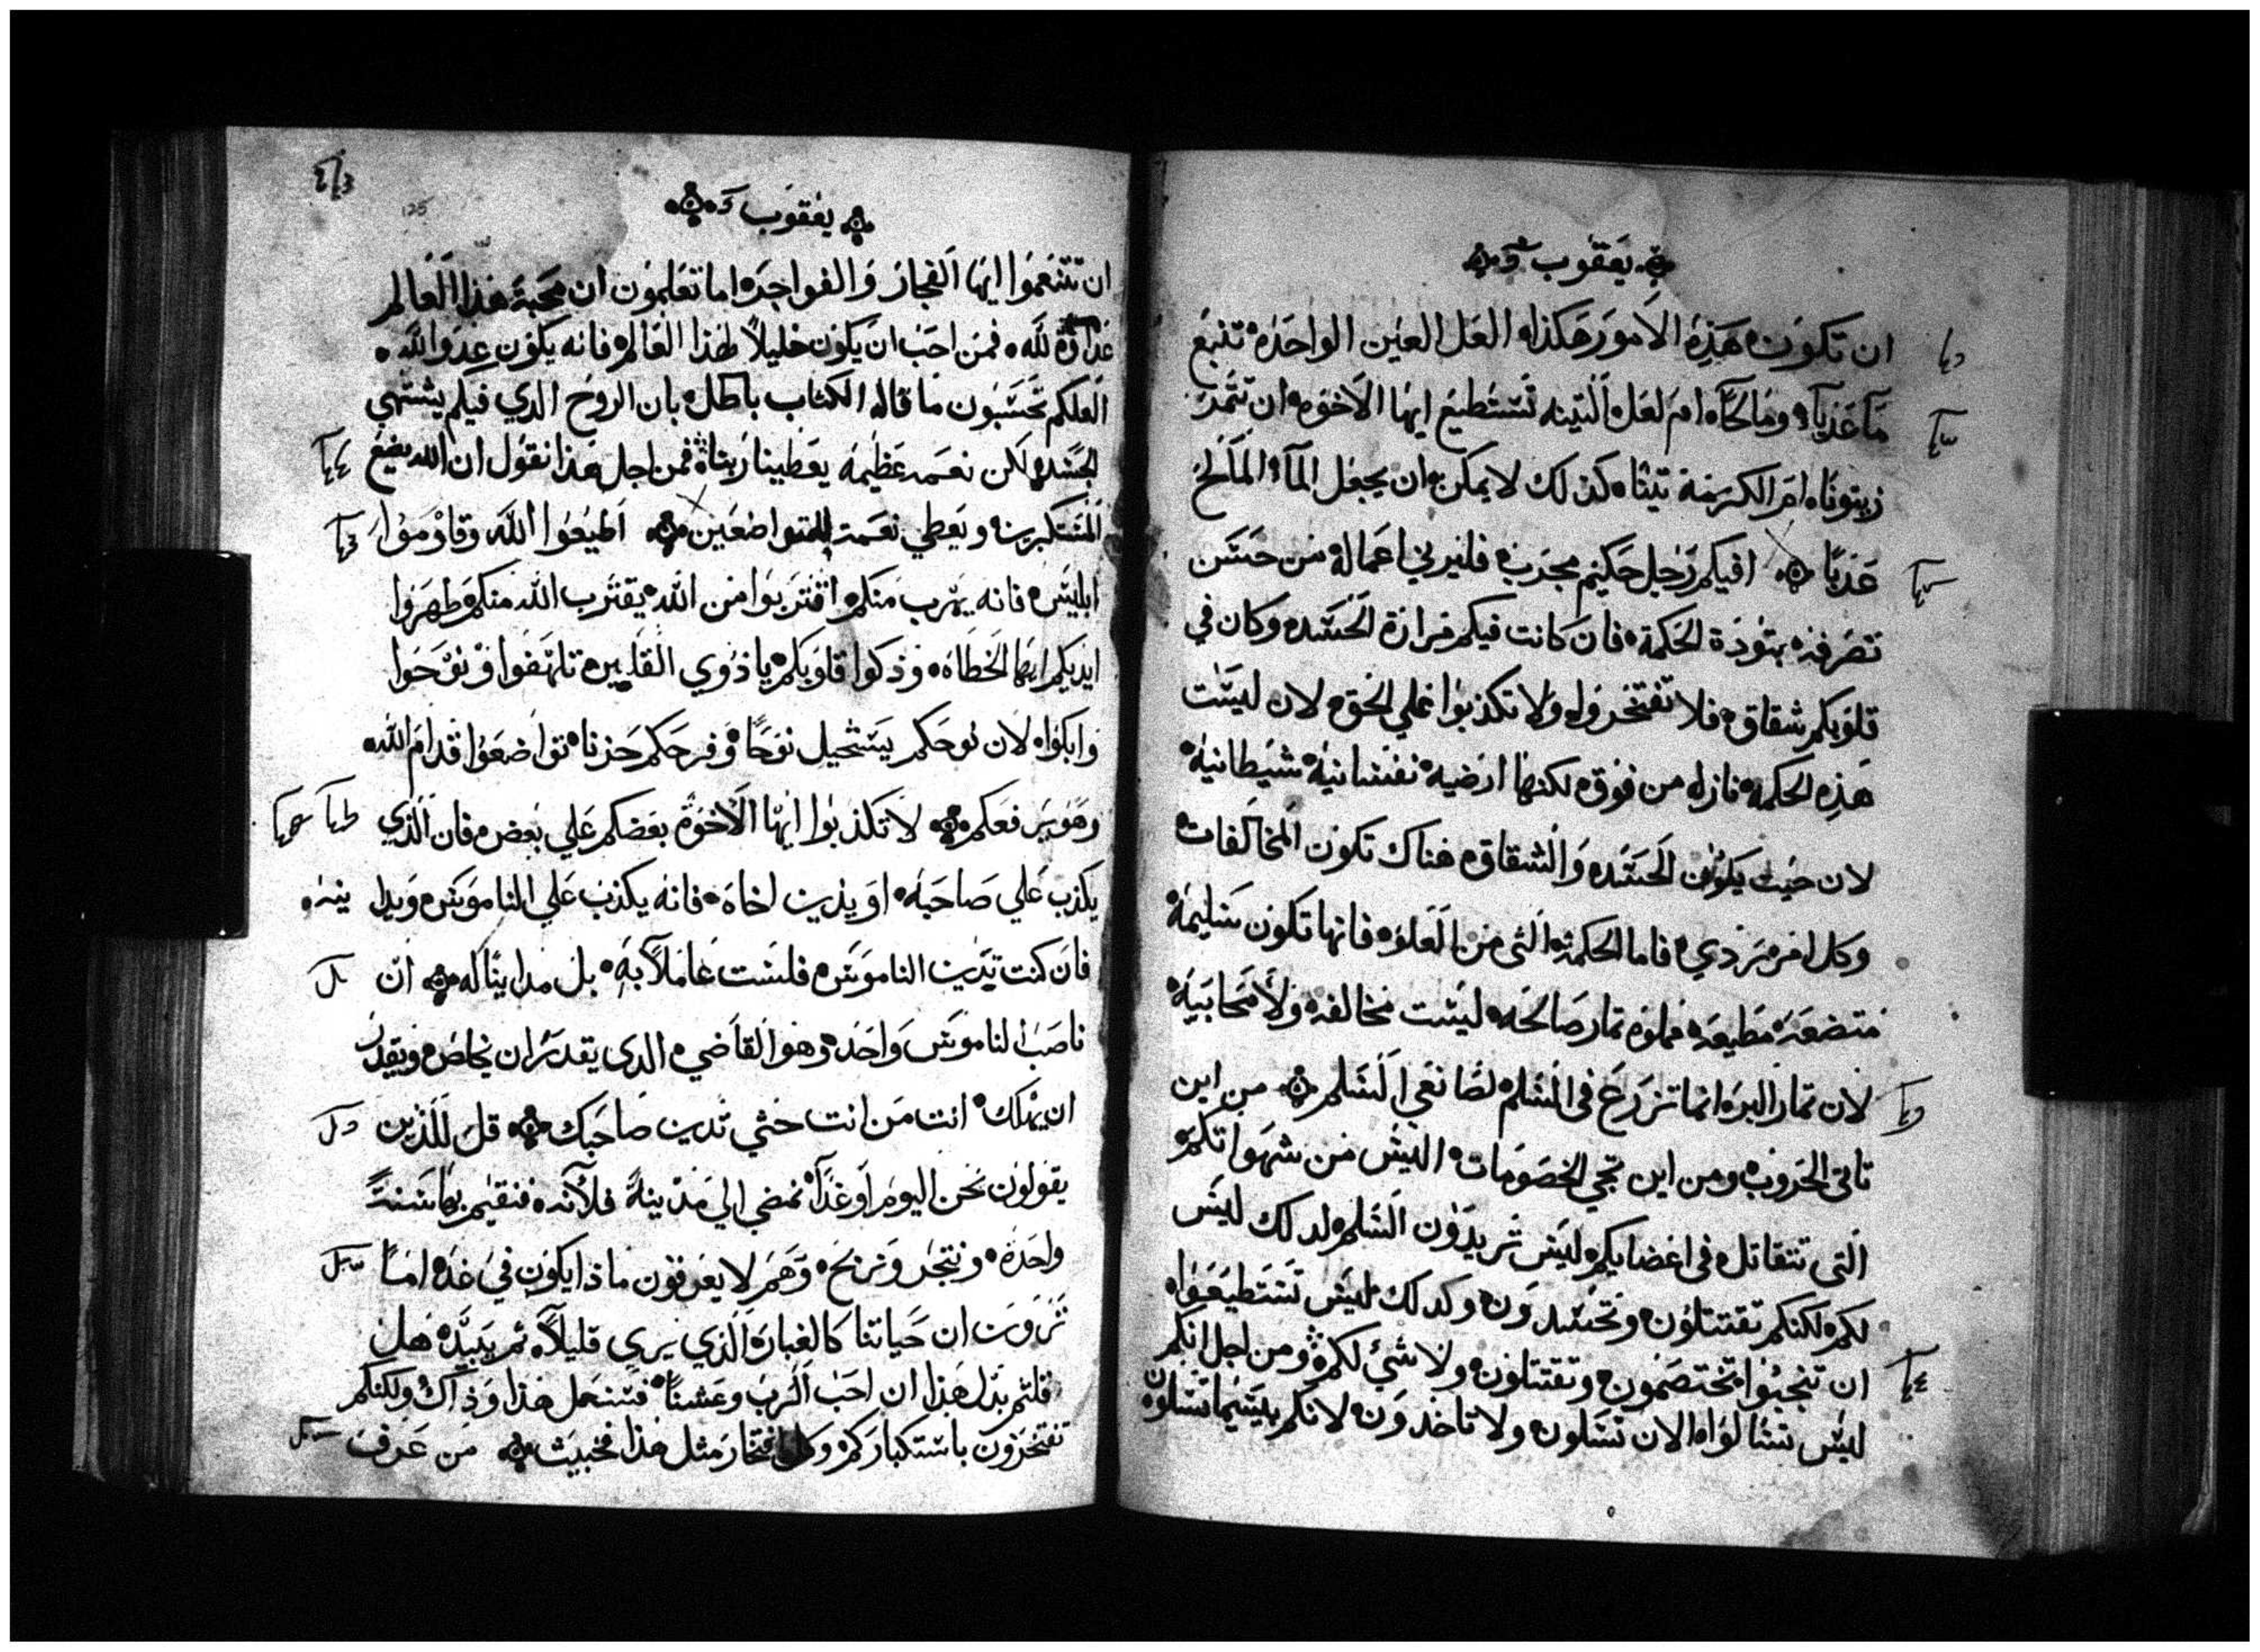 يعقوب
ان تكون هذه الامور هكذا العل العين الواحده تنبع
مآ عذبآ ومالحآ ام لعل التينه تستطيع ايها الاخوه ان تثمر
زيتونا ام الكرمة تينا كذلك لا يمكن ان يجعل المآء المالح
عذبا افيكم رجل حكيم مجرب فليرني اعماله من حسن
تصرفه بتؤدة الحكمة فان كانت فيكم مرارة الحسد وكان في
قلوبكم شقاق فلا تفتخروا ولا تكذبوا علي الحق لان ليست
هذه الحكمه نازله من فوق لكنها ارضيه نفسانيه شيطانيه
لان حيث يكون الحسد والشقاق هناك تكون المخالفات
وكل امر ردي فاما الحكمة التي من العلو فانها تكون سليمة
متضعة مطيعه مملوه ثمار صالحه ليست مخالفه ولا محابيه
لان ثمار البر انما تزرع في السلم لصانعي السلم من اين
تاتي الحروب ومن اين تجي الخصومات اليس من شهواتكم
التي تتقاتل في اعضايكم ليس تريدون السلم لدلك ليس
لكم لكنكم تقتتلون وتحسدون وكدلك ليس تستطيعوا
ان تنجبوا تختصمون وتقتتلون ولا شئ لكم ومن اجل انكم
ليس تسالوا الان تسلون ولا تاخدون لانكم بيسما تسلون
125
يعقوب
ان تتنعموا ايها الفجار والفواجره اما تعلمون ان محبة هذا العالم
عداوة لله فمن احب ان يكون خليلاً لهذا العالم فانه يكون عدو الله
العلكم تحسبون ما قاله الكتاب باطل بان الروح الدي فيكم يشتهي
الحسد لكن نعمه عظيمه يعطينا ربنا فمن اجل هذا نقول ان الله يضع
المستكبرين ويعطي نعمت للمتواضعين اطيعوا الله وقاوموا
ابليس فانه يهرب منكم اقتربوا من الله يقترب الله منكم طهروا
ايديكم ايها الخطاه وذكوا قلوبكم يا ذوي القلبين تلهفوا ونوحوا
وابكوا لان لوحكم يستحيل نوحًا وفرحكم حزنا تواضعوا قدام الله
وهو يرفعكم لا تكذبوا ايها الاخوة بعضكم علي بعض فان الذي
يكذب علي صاحبه او يدين اخاه فانه يكذب علي الناموس ويدا ينه
فان كنت تدين الناموس فلست عاملاً به بل مداينًا له ان
ناصب الناموس واحد وهو القاضي الدي يقدر ان يخلص ويقدر
ان يهلك انت من انت حتي تدين صاحبك قل للذين
يقولون نحن اليوم او غدًا نمضي الي مدينة فلانه فنقيم بها سنتً
واحدة ونتجر ونربح وهم لا يعرفون ماذا يكون في غد اما
ترون ان حياتنا كالغبار الذي يري قليلاً ثم يبيد هل
قلتم بدل هذا ان احب الرب وعشنا فسنعمل هذا وذاك ولكنكم
تفتخرون باستكباركم وكل افتخار مثل هذا فخبيث من عرف